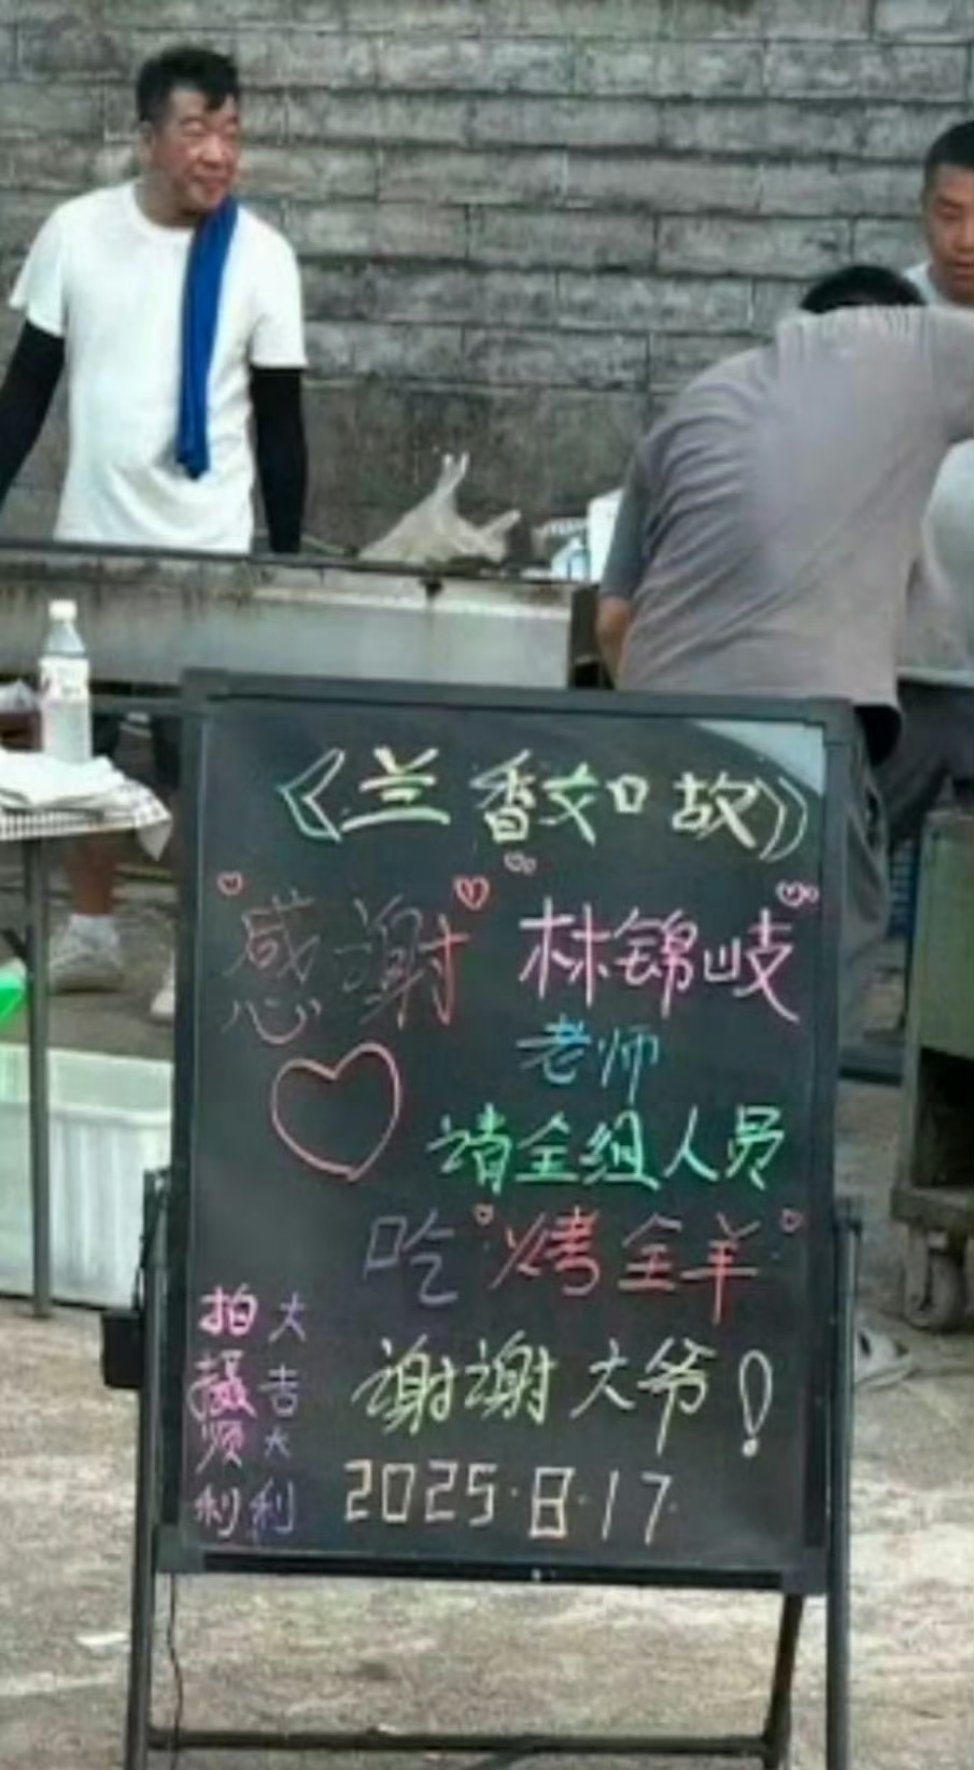 《兰香如故》
感谢 林锦岐
老师
请全组人员
吃 烤全羊
谢谢大爷！
2025.8.17.
拍摄顺利
大吉大利